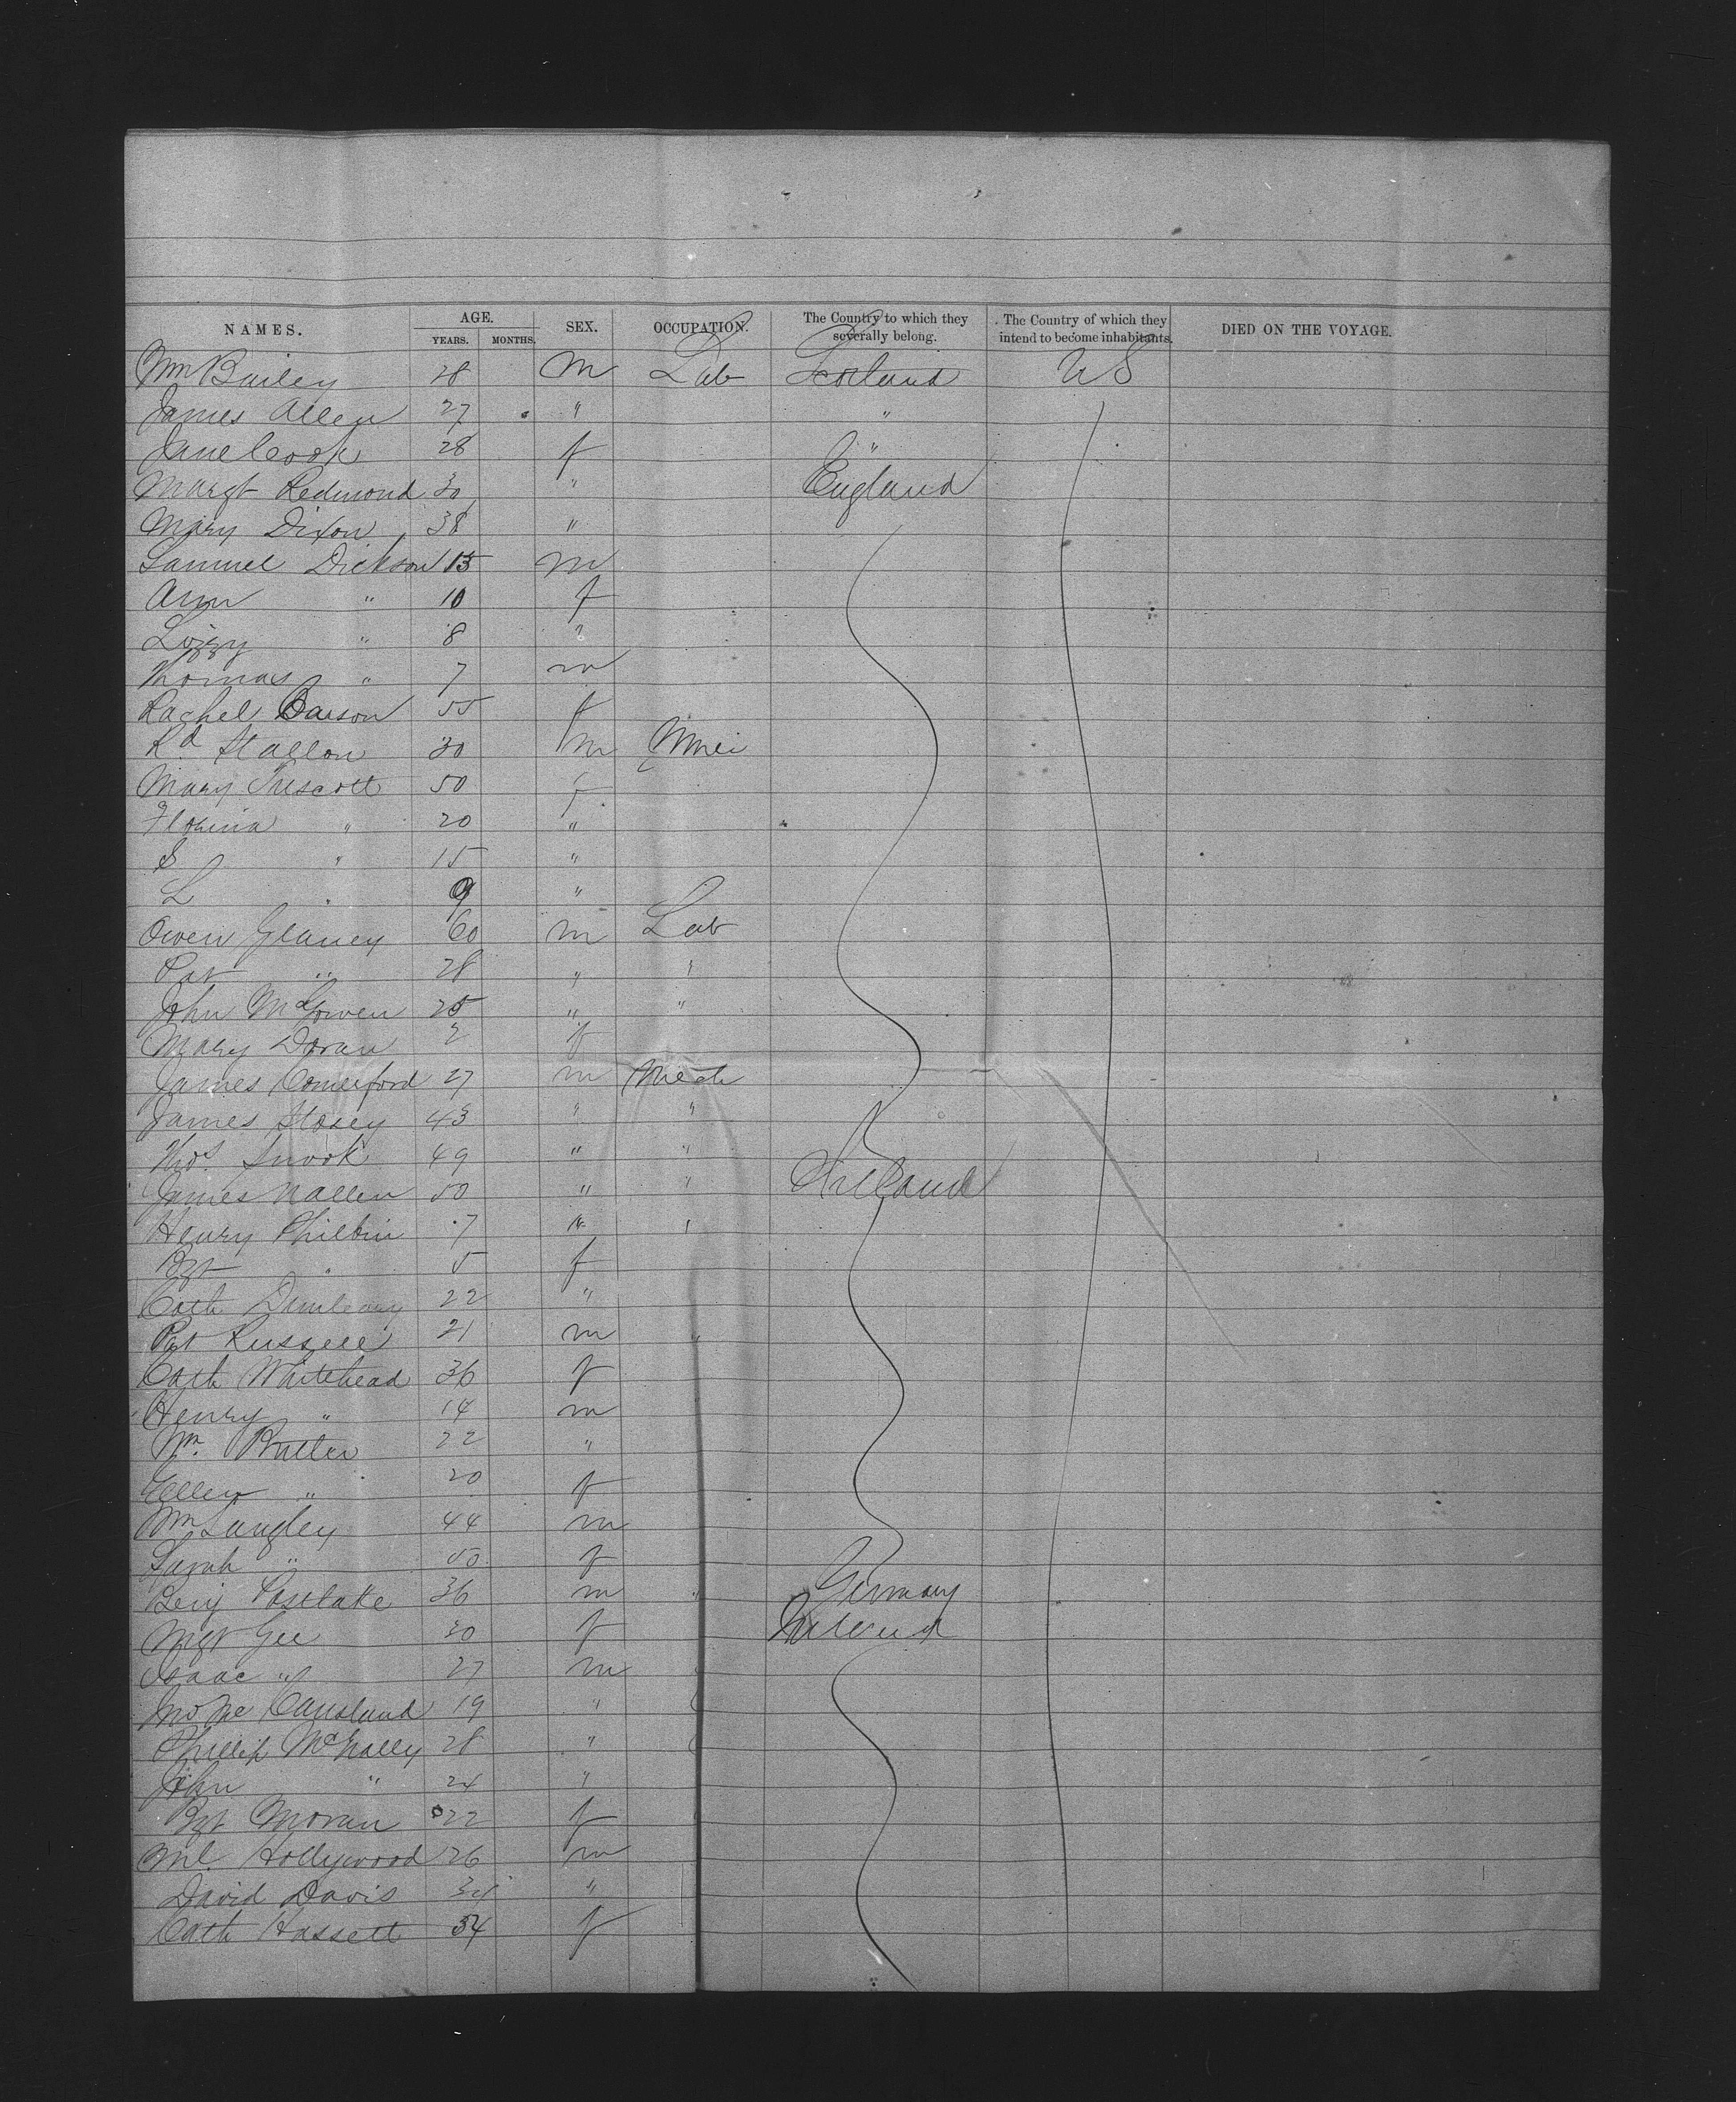 NAMES. AGE. SEX. OCCUPATION. The Country to which they severally belong. The Country of which they intend to become inhabitants. DIED ON THE VOYAGE.
YEARS. MONTHS.
Wm Bailey 28 m Lab Scotland U S
James Allen 27 " "
Jane Cook 28 f "
Margt Redmond 30 " England
Mary Dixon 38 "
Samuel Dickson 13 m
Ann " 10 f
Lizzy " 8 "
Thomas " 7 m
Rachel 55 f
Rd Stallon 30 m
Mary Truscott 50 f
Florina " 20 "
S " 15 "
L " 9 "
Owen Glaney 60 m Lab
Pat " 28 " "
John McGowen 25 " "
Mary Doran 2 f
James Comerford 27 m Mech
James Stosey 43 " "
Thos. Snook 49 " "
James Nallen 50 " " Ireland
Henry Philbin 7 " "
Bgt " 5 f
Cath Dunleavy 22 "
Pat Russell 21 m "
Cath Whitehead 36 f
Henry " 14 m
Wm. Butler 22 "
Ellen " 20 f
Wm Langley 44 m
Sarah " 50 f
Benj Pastlake 36 m " Germany
Mgt Gee 30 f Ireland
Isaac " 27 m
Jno Mc Causland 19 "
Phillip McNally 28 "
John " 24 "
Bgt Moran 22 f
Ml. Hollywood 26 m
David Davis 34 "
Cath Hassett 34 f